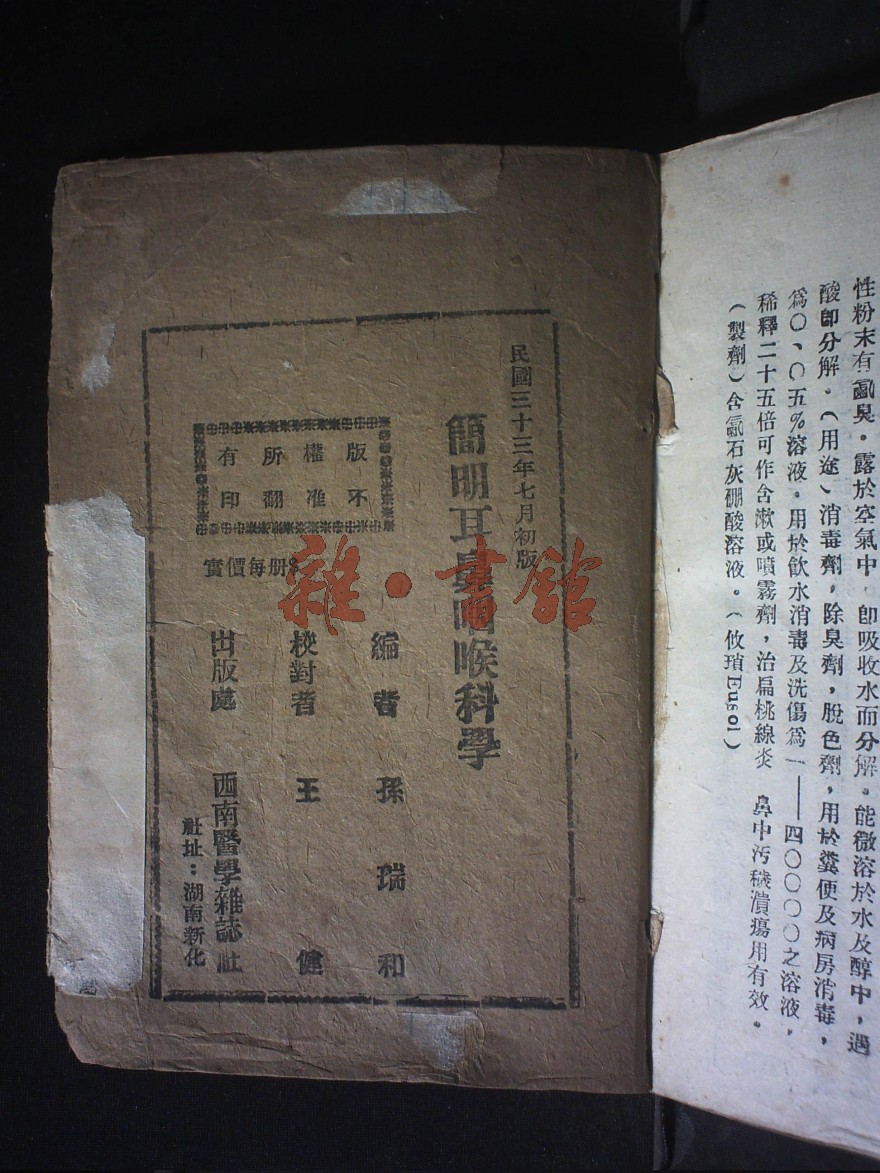 性粉末有氯臭。露於空氣中,即吸收水而分解。能微溶於水及醇中,遇
酸即分解。(用途)消毒劑,除臭劑,脫色劑,用於糞便及病房消毒,
爲〇、〇五%溶液。用於飲水消毒及洗傷爲一——四〇〇〇〇之溶液,
稀釋二十五倍可作含漱或噴霧劑,治扁桃線炎 鼻中汚穢潰瘍用有效。
(製劑)含氯石灰硼酸溶液。(攸瑣Eusol)
民國三十三年七月初版
簡明耳鼻咽喉科學
版權所有
不准翻印
實價每册
編者 孫瑞和
校對者 王健
出版處 西南醫學雜誌社
社址:湖南新化
雜·書館